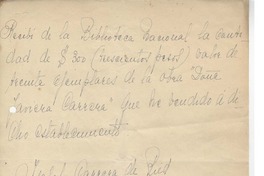 Recibí de la Biblioteca Nacional la canti-
dad de $ 300 (trescientos pesos) valor de
treinta ejemplares de la obra "Doña
Javiera Carrera" que he vendido a di-
cho establecimiento
Carrera de